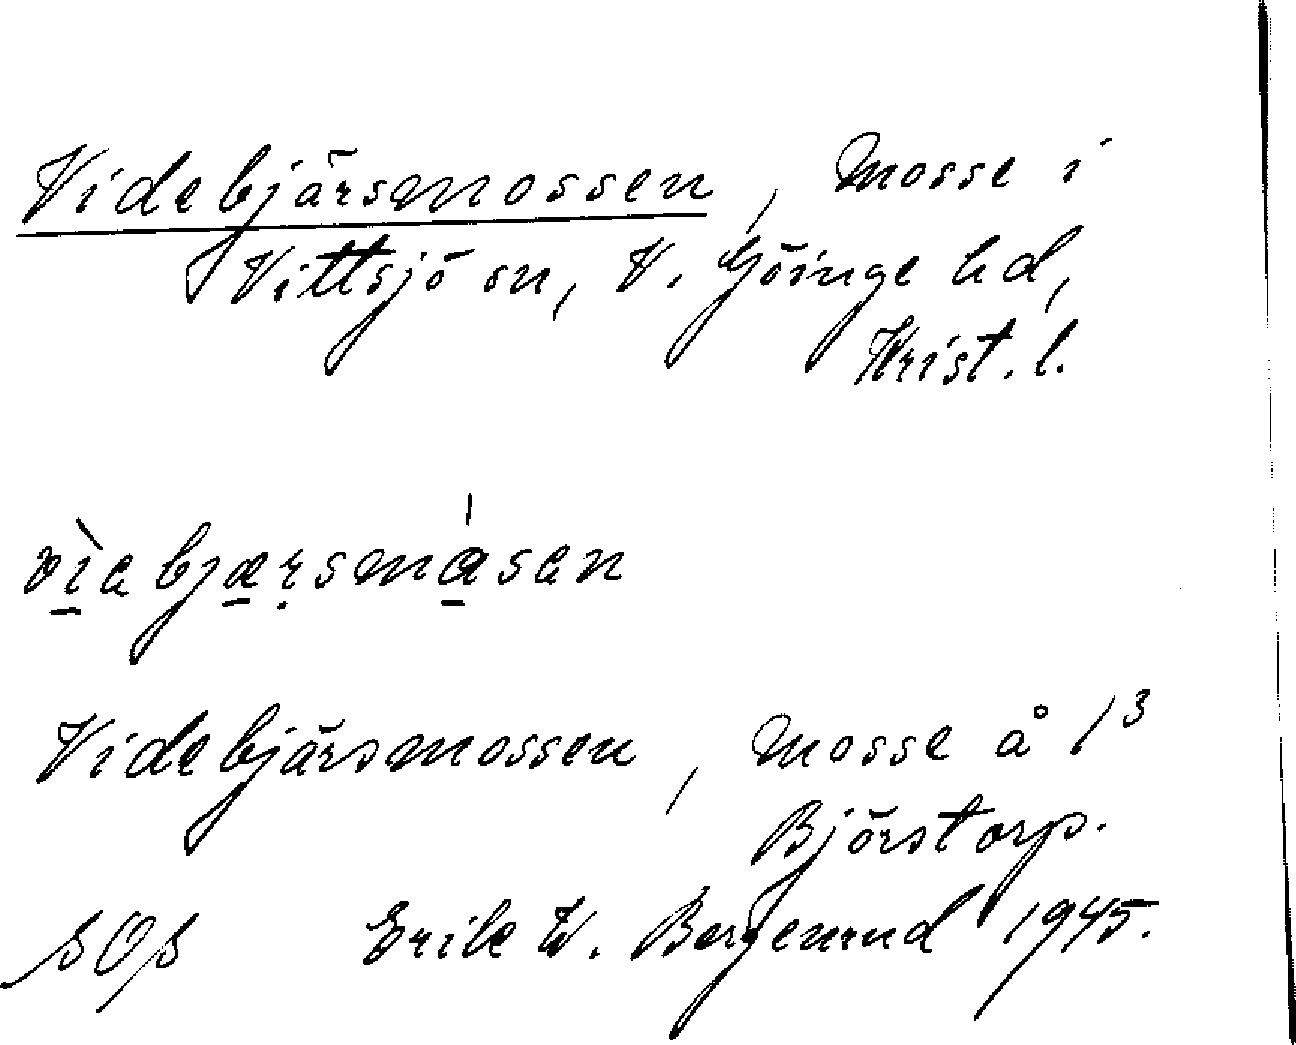 Videbjärsmossen, Mosse i
Vittsjö sn, V. Göinge hd,
Krist. l.
vìebjæṛsmásen
Videbjärsmossen, Mosse å 1³
Björstorp.
Erik W. Bergenrud 1945.